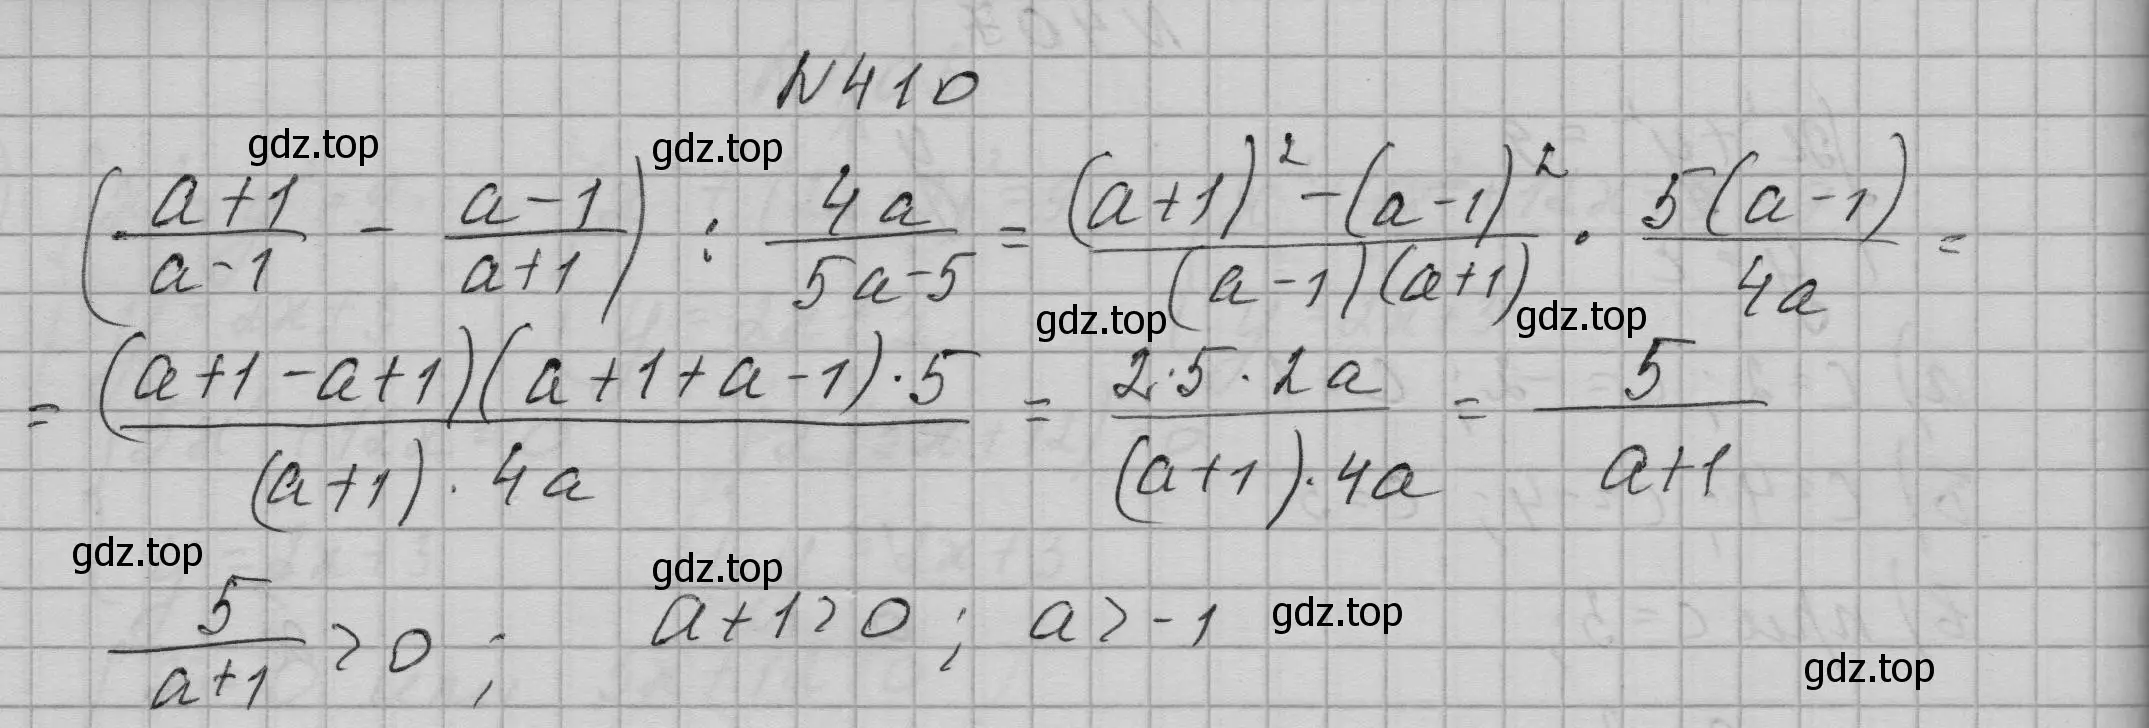 N410
gdz.top gdz.top
((a+1)/(a-1) - (a-1)/(a+1)) : 4a/(5a-5) = ((a+1)² - (a-1)²)/((a-1)(a+1)) · 5(a-1)/(4a) =
gdz.top gdz.top
= ((a+1-a+1)(a+1+a-1)·5)/((a+1)·4a) = (2·5·2a)/((a+1)·4a) = 5/(a+1)
gdz.top gdz.top gdz.top
5/(a+1) > 0; a+1>0; a>-1
gdz.top